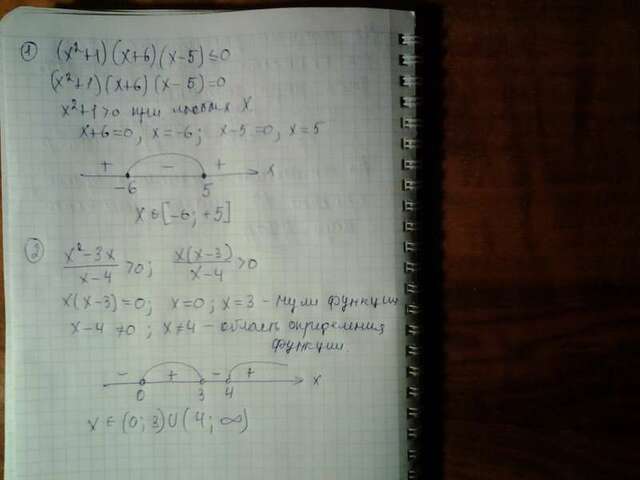 ① (x²+1)(x+6)(x-5)≤0
(x²+1)(x+6)(x-5)=0
x²+1>0 при любых x
x+6=0, x=-6; x-5=0, x=5
+ - + x
-6 5
x∈[-6;+5]
② x²-3x/x-4>0; x(x-3)/x-4>0
x(x-3)=0; x=0; x=3 - нули функции
x-4≠0; x≠4 - область определения
функции.
- + - + x
0 3 4
x∈(0;3)∪(4;∞)